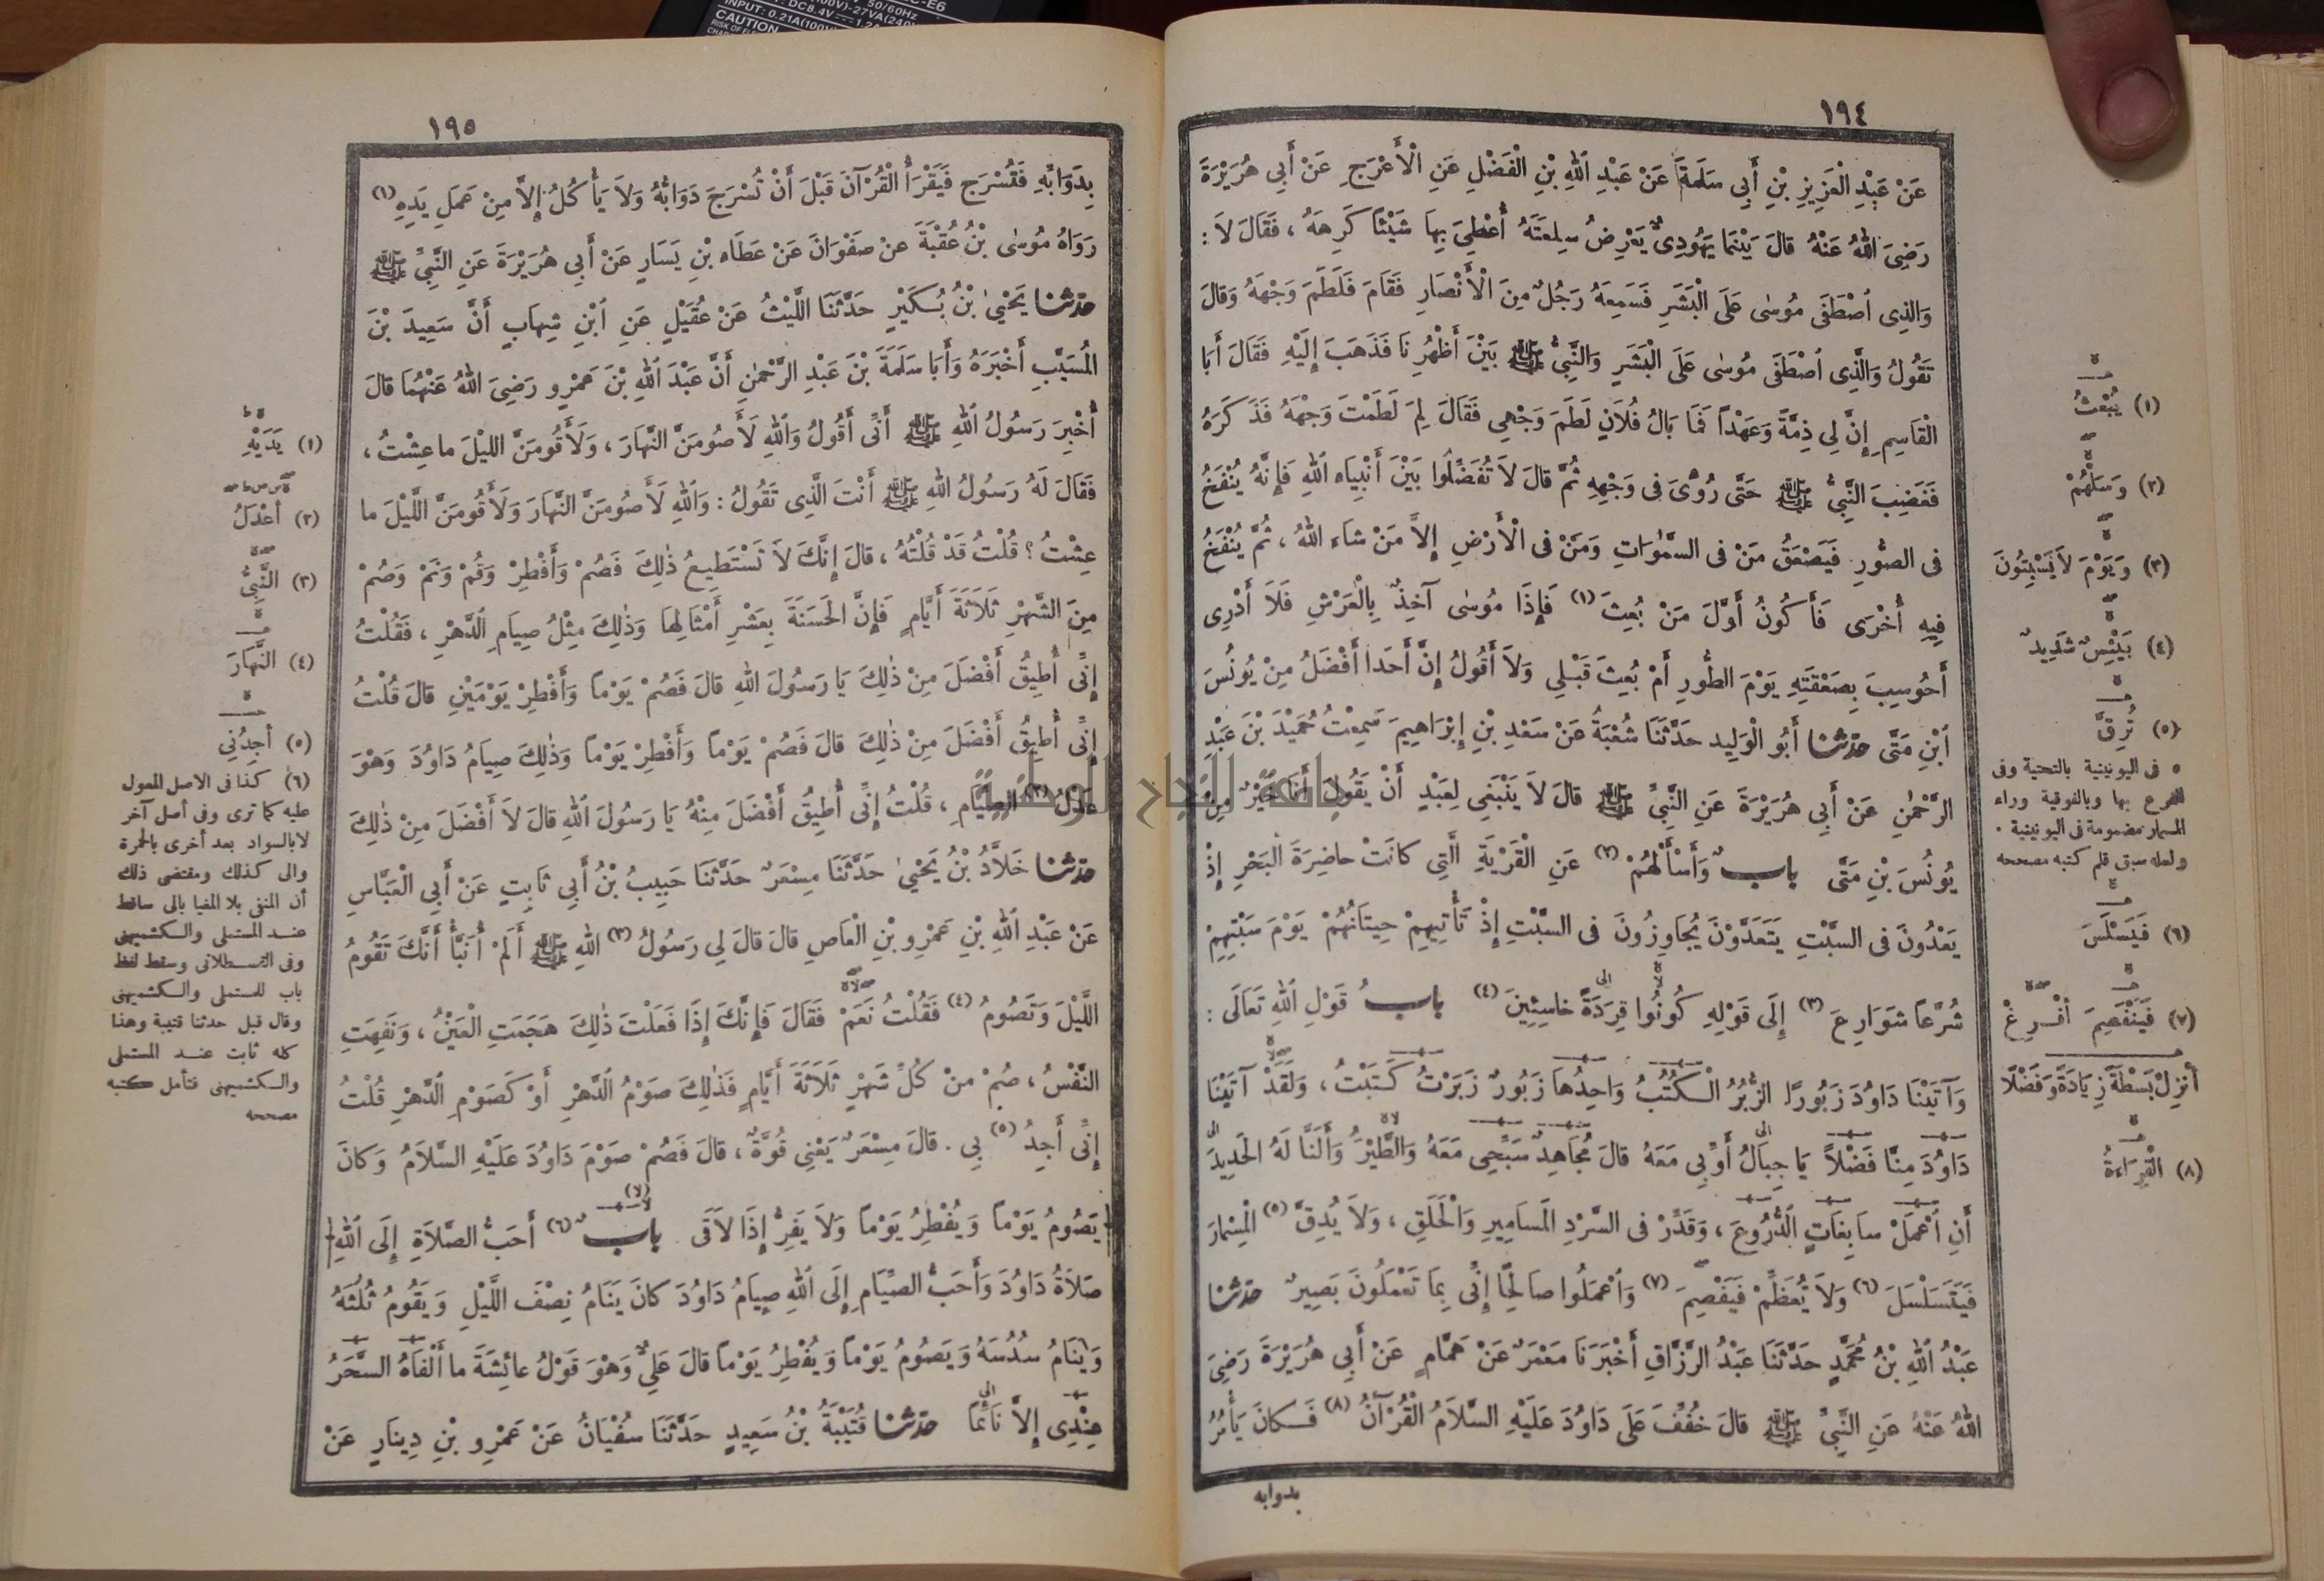 ١٩٤
عَنْ عَبْدِ الْعَزِيزِ بْنِ أَبِي سَلَمَةَ عَنْ عَبْدِ اللهِ بْنِ الْفَضْلِ عَنِ الْأَعْرَجِ عَنْ أَبِي هُرَيْرَةَ
رَضِيَ اللهُ عَنْهُ قالَ بَيْنَمَا يَهُودِىٌّ يَعْرِضُ سِلْعَتَهُ أُعْطِىَ بِهَا شَيْئًا كَرِهَهُ ، فَقَالَ لاَ :
وَالَّذِى اصْطَفَى مُوسٰى عَلَى الْبَشَرِ فَسَمِعَهُ رَجُلٌ مِنَ الْأَنْصَارِ فَقَامَ فَلَطَمَ وَجْهَهُ وَقالَ
تَقُولُ وَالَّذِى اصْطَفَى مُوسٰى عَلَى الْبَشَرِ وَالنَّبِيُّ ﷺ بَيْنَ أَظْهُرِنَا فَذَهَبَ إِلَيْهِ فَقَالَ أَبَا
الْقَاسِمِ إِنَّ لِي ذِمَّةً وَعَهْدًا فَمَا بَالُ فُلاَنٍ لَطَمَ وَجْهِى فَقَالَ لِمَ لَطَمْتَ وَجْهَهُ فَذَكَرَهُ
فَغَضِبَ النَّبِيُّ ﷺ حَتَّى رُؤِىَ فِى وَجْهِهِ ثُمَّ قالَ لاَ تُفَضِّلُوا بَيْنَ أَنْبِيَاءِ اللهِ فَإِنَّهُ يُنْفَخُ
فِى الصُّورِ فَيَصْعَقُ مَنْ فِى السَّمٰوَاتِ وَمَنْ فِى الْأَرْضِ إِلاَّ مَنْ شاءَ اللهُ ، ثُمَّ يُنْفَخُ
فِيهِ أُخْرَى فَأَكُونُ أَوَّلَ مَنْ بُعِثَ (١) فَإِذَا مُوسٰى آخِذٌ بِالْعَرْشِ فَلاَ أَدْرِى
أَحُوسِبَ بِصَعْقَتِهِ يَوْمَ الطُّورِ أَمْ بُعِثَ قَبْلِي وَلاَ أَقُولُ إِنَّ أَحَدًا أَفْضَلُ مِنْ يُونُسَ
ابْنِ مَتَّى حَدَّثَنَا أَبُو الْوَلِيدِ حَدَّثَنَا شُعْبَةُ عَنْ سَعْدِ بْنِ إِبْرَاهِيمَ سَمِعْتُ حُمَيْدَ بْنَ عَبْدِ
الرَّحْمٰنِ عَنْ أَبِي هُرَيْرَةَ عَنِ النَّبِيِّ ﷺ قالَ لاَ يَنْبَغِى لِعَبْدٍ أَنْ يَقُولَ أَنَا خَيْرٌ مِنْ
يُونُسَ بْنِ مَتَّى بابٌ وَأَسْأَلْهُمْ (٢) عَنِ الْقَرْيَةِ الَّتِى كانَتْ حاضِرَةَ الْبَحْرِ إِذْ
يَعْدُونَ فِى السَّبْتِ يَتَعَدَّوْنَ يُجَاوِزُونَ فِى السَّبْتِ إِذْ تَأْتِيهِمْ حِيتَانُهُمْ يَوْمَ سَبْتِهِمْ
شُرَّعًا شَوَارِعَ (٣) إِلَى قَوْلِهِ كُونُوا قِرَدَةً خاسِئِينَ (٤) بابُ قَوْلِ اللهِ تَعَالَى :
وَآتَيْنَا دَاوُدَ زَبُورًا الزُّبُرُ الْكُتُبُ وَاحِدُهَا زَبُورٌ زَبَرْتُ كَتَبْتُ ، وَلَقَدْ آتَيْنَا
دَاوُدَ مِنَّا فَضْلًا يَا جِبَالُ أَوِّبِى مَعَهُ قالَ مُجَاهِدٌ سَبِّحِى مَعَهُ وَالطَّيْرَ وَأَلَنَّا لَهُ الحَدِيدَ
أَنِ اعْمَلْ سابِغَاتٍ الدُّرُوعَ ، وَقَدِّرْ فِى السَّرْدِ المَسَامِيرِ وَالْحَلَقِ ، وَلاَ يُدِقَّ (٥) الْمِسْمَارَ
فَيَتَسَلْسَلَ (٦) وَلاَ يُعَظِّمْ فَيَفْصِمَ (٧) وَاعْمَلُوا صالِحًا إِنِّى بِمَا تَعْمَلُونَ بَصِيرٌ حَدَّثَنَا
عَبْدُ اللهِ بْنُ مُحَمَّدٍ حَدَّثَنَا عَبْدُ الرَّزَّاقِ أَخْبَرَنَا مَعْمَرٌ عَنْ هَمَّامٍ عَنْ أَبِي هُرَيْرَةَ رَضِيَ
اللهُ عَنْهُ عَنِ النَّبِيِّ ﷺ قالَ خُفِّفَ عَلَى دَاوُدَ عَلَيْهِ السَّلاَمُ الْقُرْآنُ (٨) فَكانَ يَأْمُرُ
بدوابه
(١) يُبْعَثُ
(٢) وَسَلْهُمْ
(٣) وَيَوْمَ لاَ يَسْبِتُونَ
(٤) بَئِيسٍ شَدِيدٌ
(٥) تُرِقَّ
ه فى اليونينية بالتحتية وفى
الفرع بها وبالفوقية وراء
المسمار مضمومة فى اليونينية .
ولعله سبق قلم كتبه مصححه
(٦) فَيَسْلَسَ
(٧) فَيَنْفَصِمَ أَفْرِغْ
أَنْزِلْ بَسْطَةً زِيَادَةً وَفَضْلًا
(٨) الْقِرَاءَةُ
١٩٥
بِدَوَابِّهِ فَتُسْرَجُ فَيَقْرَأُ الْقُرْآنَ قَبْلَ أَنْ تُسْرَجَ دَوَابُّهُ وَلاَ يَأْكُلُ إِلاَّ مِنْ عَمَلِ يَدِهِ (١)
رَوَاهُ مُوسٰى بْنُ عُقْبَةَ عَنْ صَفْوَانَ عَنْ عَطَاءِ بْنِ يَسَارٍ عَنْ أَبِي هُرَيْرَةَ عَنِ النَّبِيِّ ﷺ
حَدَّثَنَا يَحْيىٰ بْنُ بُكَيْرٍ حَدَّثَنَا اللَّيْثُ عَنْ عُقَيْلٍ عَنِ ابْنِ شِهَابٍ أَنَّ سَعِيدَ بْنَ
المُسَيَّبِ أَخْبَرَهُ وَأَبَا سَلَمَةَ بْنَ عَبْدِ الرَّحْمٰنِ أَنَّ عَبْدَ اللهِ بْنَ عَمْرٍو رَضِيَ اللهُ عَنْهُمَا قالَ
أُخْبِرَ رَسُولُ اللهِ ﷺ أَنِّى أَقُولُ وَاللهِ لَأَصُومَنَّ النَّهَارَ ، وَلَأَقُومَنَّ اللَّيْلَ ما عِشْتُ ،
فَقَالَ لَهُ رَسُولُ اللهِ ﷺ أَنْتَ الَّذِى تَقُولُ : وَاللهِ لَأَصُومَنَّ النَّهَارَ وَلَأَقُومَنَّ اللَّيْلَ ما
عِشْتُ ؟ قُلْتُ قَدْ قُلْتُهُ ، قالَ إِنَّكَ لاَ تَسْتَطِيعُ ذٰلِكَ فَصُمْ وَأَفْطِرْ وَقُمْ وَنَمْ وَصُمْ
مِنَ الشَّهْرِ ثَلاَثَةَ أَيَّامٍ فَإِنَّ الحَسَنَةَ بِعَشْرِ أَمْثَالِهَا وَذٰلِكَ مِثْلُ صِيَامِ الدَّهْرِ ، فَقُلْتُ
إِنِّى أُطِيقُ أَفْضَلَ مِنْ ذٰلِكَ يَا رَسُولَ اللهِ قالَ فَصُمْ يَوْمًا وَأَفْطِرْ يَوْمَيْنِ قالَ قُلْتُ
إِنِّى أُطِيقُ أَفْضَلَ مِنْ ذٰلِكَ قالَ فَصُمْ يَوْمًا وَأَفْطِرْ يَوْمًا وَذٰلِكَ صِيَامُ دَاوُدَ وَهْوَ
عَدْلُ (٢) الصِّيَامِ ، قُلْتُ إِنِّى أُطِيقُ أَفْضَلَ مِنْهُ يَا رَسُولَ اللهِ قالَ لاَ أَفْضَلَ مِنْ ذٰلِكَ
حَدَّثَنَا خَلاَّدُ بْنُ يَحْيىٰ حَدَّثَنَا مِسْعَرٌ حَدَّثَنَا حَبِيبُ بْنُ أَبِي ثَابِتٍ عَنْ أَبِي الْعَبَّاسِ
عَنْ عَبْدِ اللهِ بْنِ عَمْرِو بْنِ الْعَاصِ قالَ قالَ لِي رَسُولُ (٣) اللهِ ﷺ أَلَمْ أُنَبَّأْ أَنَّكَ تَقُومُ
اللَّيْلَ وَتَصُومُ (٤) فَقُلْتُ نَعَمْ فَقَالَ فَإِنَّكَ إِذَا فَعَلْتَ ذٰلِكَ هَجَمَتِ الْعَيْنُ ، وَنَفِهَتِ
النَّفْسُ ، صُمْ مِنْ كُلِّ شَهْرٍ ثَلاَثَةَ أَيَّامٍ فَذٰلِكَ صَوْمُ الدَّهْرِ أَوْ كَصَوْمِ الدَّهْرِ قُلْتُ
إِنِّى أَجِدُ (٥) بِي . قالَ مِسْعَرٌ يَعْنِى قُوَّةً ، قالَ فَصُمْ صَوْمَ دَاوُدَ عَلَيْهِ السَّلاَمُ وَكانَ
يَصُومُ يَوْمًا وَيُفْطِرُ يَوْمًا وَلاَ يَفِرُّ إِذَا لاَقَى بابٌ (٦) أَحَبُّ الصَّلاَةِ إِلَى اللهِ
صَلاَةُ دَاوُدَ وَأَحَبُّ الصِّيَامِ إِلَى اللهِ صِيَامُ دَاوُدَ كانَ يَنَامُ نِصْفَ اللَّيْلِ وَيَقُومُ ثُلُثَهُ
وَيَنَامُ سُدُسَهُ وَيَصُومُ يَوْمًا وَيُفْطِرُ يَوْمًا قالَ عَلِيٌّ وَهْوَ قَوْلُ عائِشَةَ ما أَلْفَاهُ السَّحَرُ
عِنْدِى إِلاَّ نَائِمًا حَدَّثَنَا قُتَيْبَةُ بْنُ سَعِيدٍ حَدَّثَنَا سُفْيَانُ عَنْ عَمْرِو بْنِ دِينَارٍ عَنْ
(١) يَدَيْهِ
(٢) أَعْدَلُ
(٣) النَّبِيُّ
(٤) النَّهَارَ
(٥) أَجِدُنِي
(٦) كذا فى الاصل المعول
عليه كما ترى وفى أصل آخر
لا بالسواد بعد أخرى بالحمرة
والى كذلك ومقتضى ذلك
أن المنفى بلا المغيا بالى ساقط
عند المستملى والكشميهنى
وفى القسطلانى وسقط لفظ
باب للمستملى والكشميهنى
وقال قبل حدثنا قتيبة وهذا
كله ثابت عند المستملى
والكشميهنى فتأمل كتبه
مصححه
جامعة النجاح الوطنية
INPUT: 0.21A(100V)
CAUTION